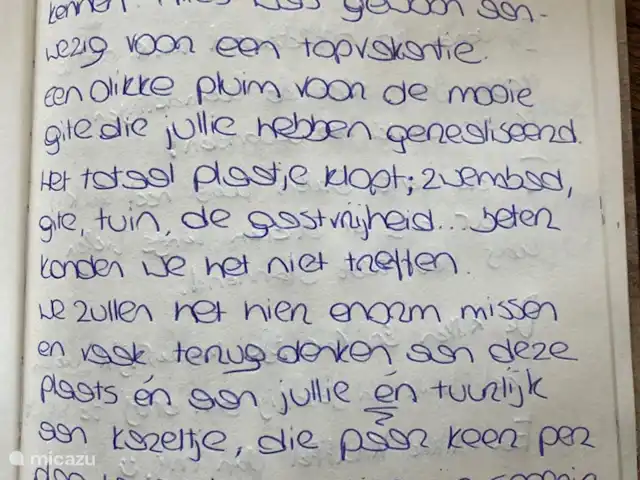 kennen. Alles was gewoon aan-
wezig voor een topvakantie.
een dikke pluim voor de mooie
gite die jullie hebben gerealiseerd.
Het totaal plaatje klopt; zwembad,
gite, tuin, de gastvrijheid... beter
konden we het niet treffen.
we zullen het hier enorm missen
en vaak terug denken aan deze
plaats én aan jullie én tuurlijk
aan kareltje, die paar keer per
micazu